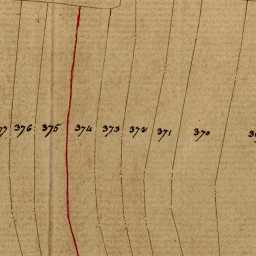 376 375 374 373 372 371 370